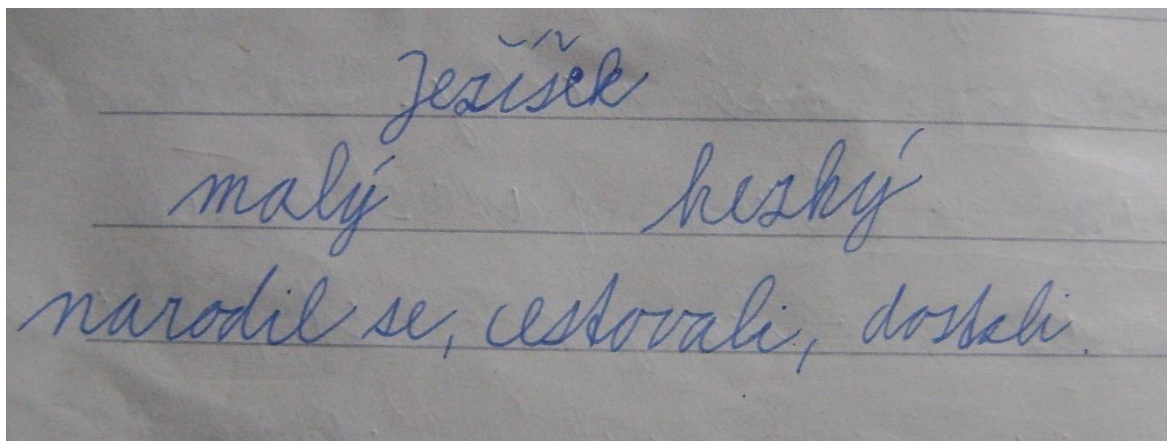 Ježíšek
malý hezký
narodil se, cestovali, dostali.